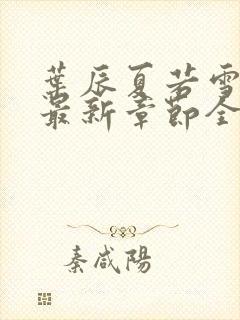 葉辰夏若雪
最新章節全
秦咸陽